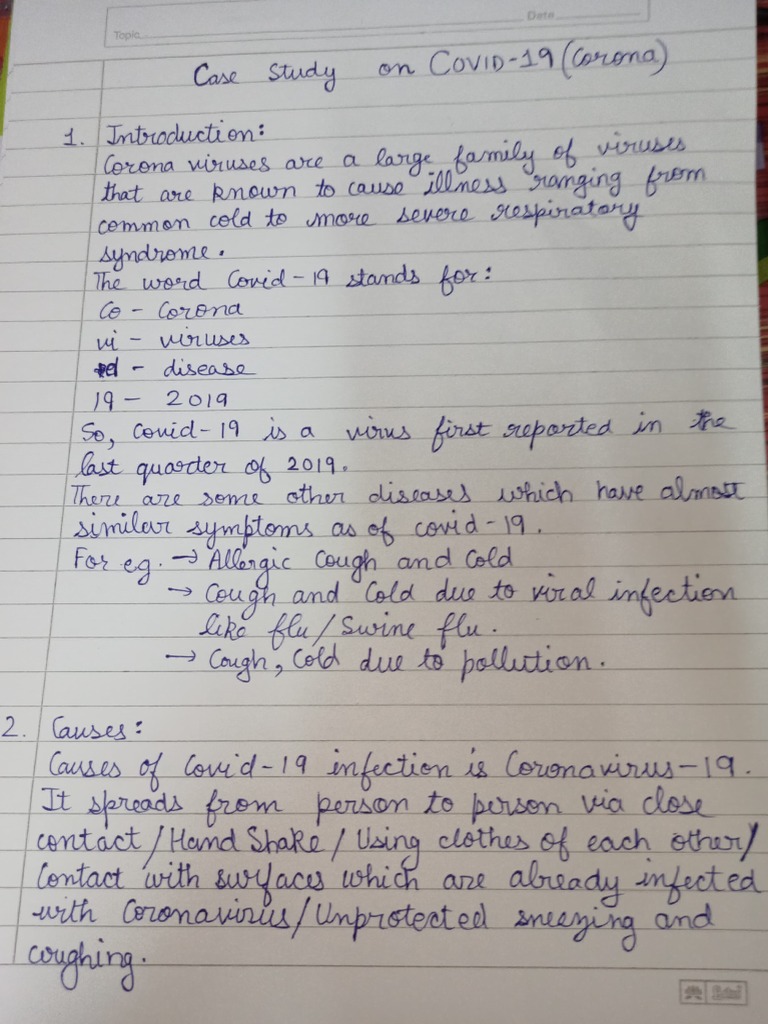 Date
Topic
Case Study on COVID-19 (Corona)
1. Introduction:
Corona viruses are a large family of viruses
that are known to cause illness ranging from
common cold to more severe respiratory
syndrome.
The word Covid-19 stands for:
Co - Corona
vi - viruses
d - disease
19 - 2019
So, Covid-19 is a virus first reported in the
last quarter of 2019.
There are some other diseases which have almost
similar symptoms as of covid-19.
For eg. → Allergic Cough and Cold
→ Cough and Cold due to viral infection
like flu/Swine flu.
→ Cough, Cold due to pollution.
2. Causes:
Causes of Covid-19 infection is Coronavirus-19.
It spreads from person to person via close
contact/Hand Shake/Using clothes of each other/
Contact with surfaces which are already infected
with Coronavirus/Unprotected sneezing and
coughing.